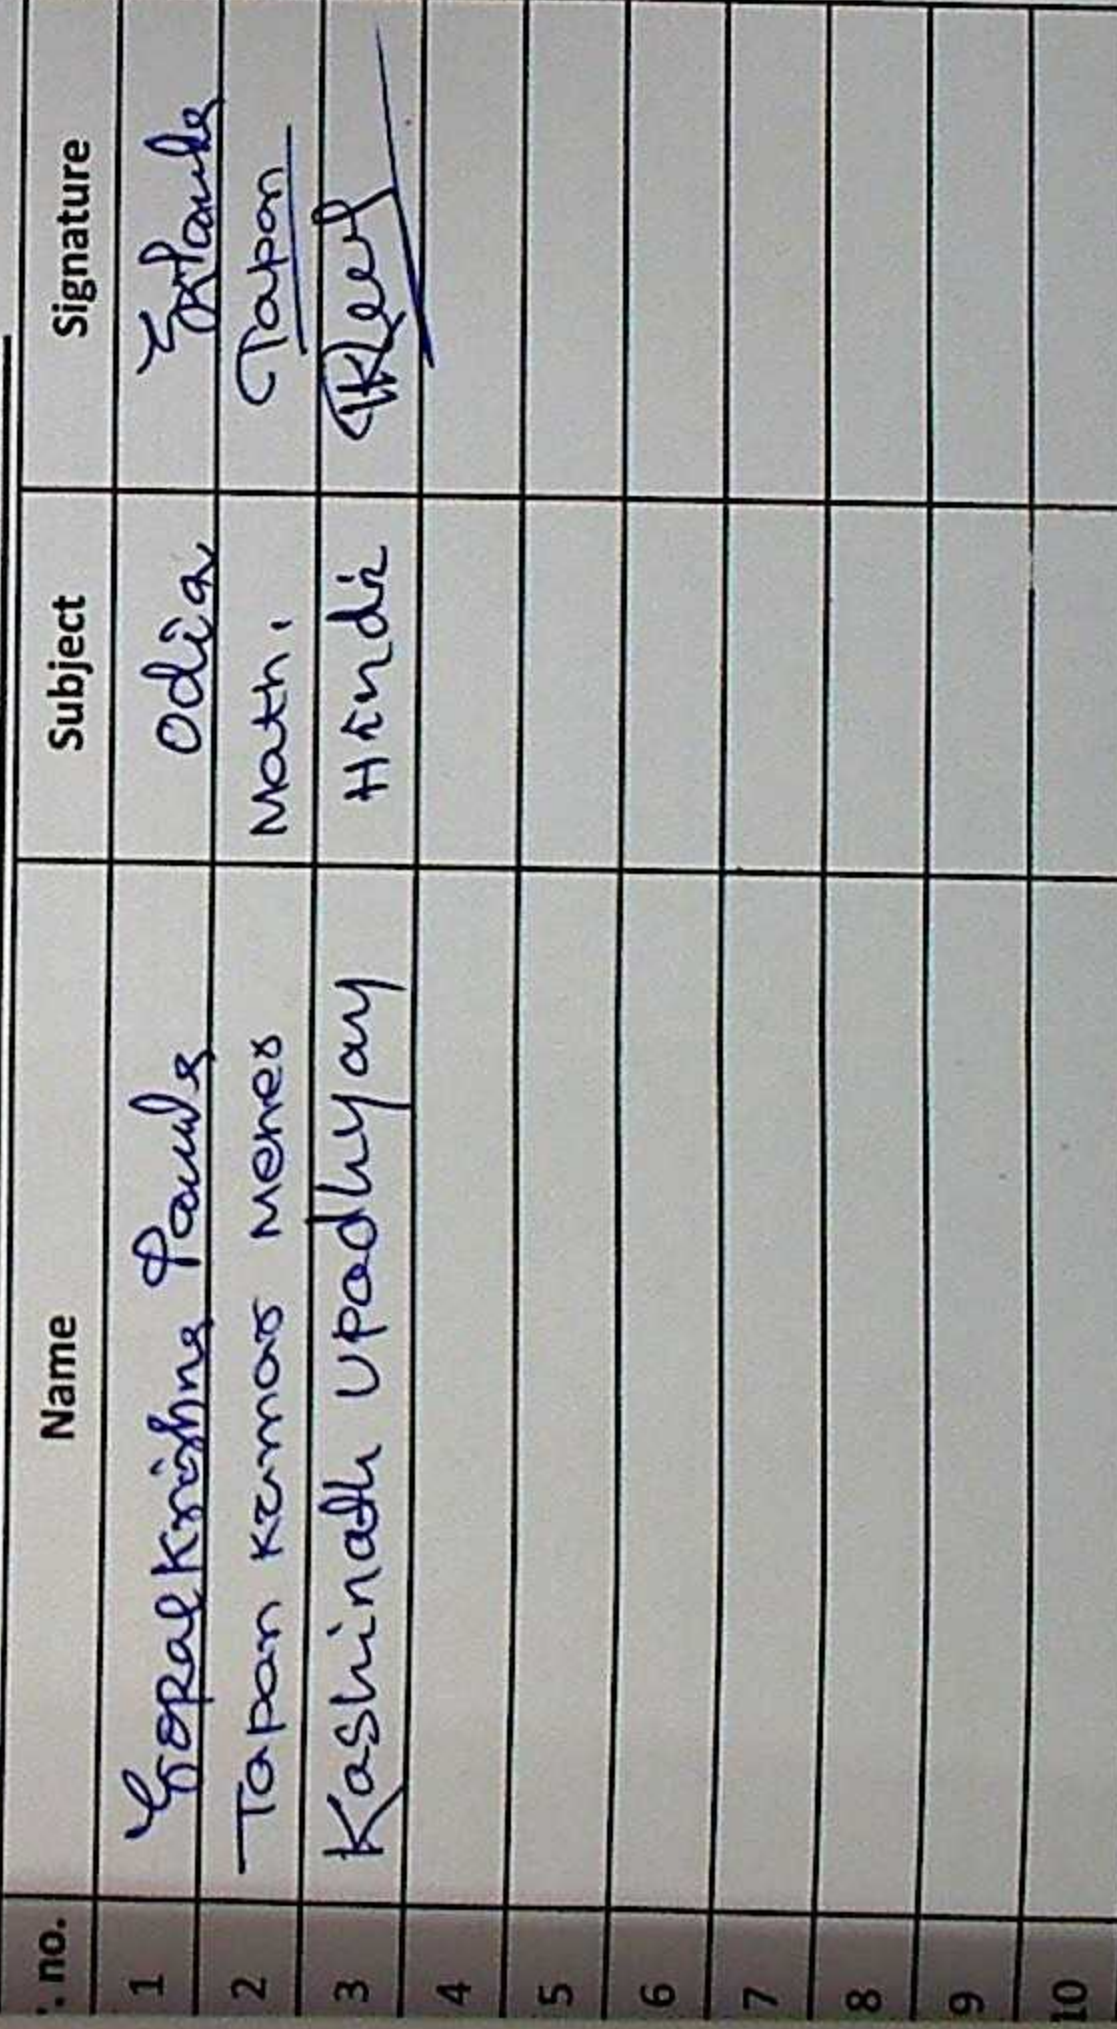 . no. Name Subject Signature
1 Gopal Krishna Panda Odia
2 Tapan Kumar Meher Math. Tapan
3 Kashinath Upadhyay Hindi
4
5
6
7
8
9
10